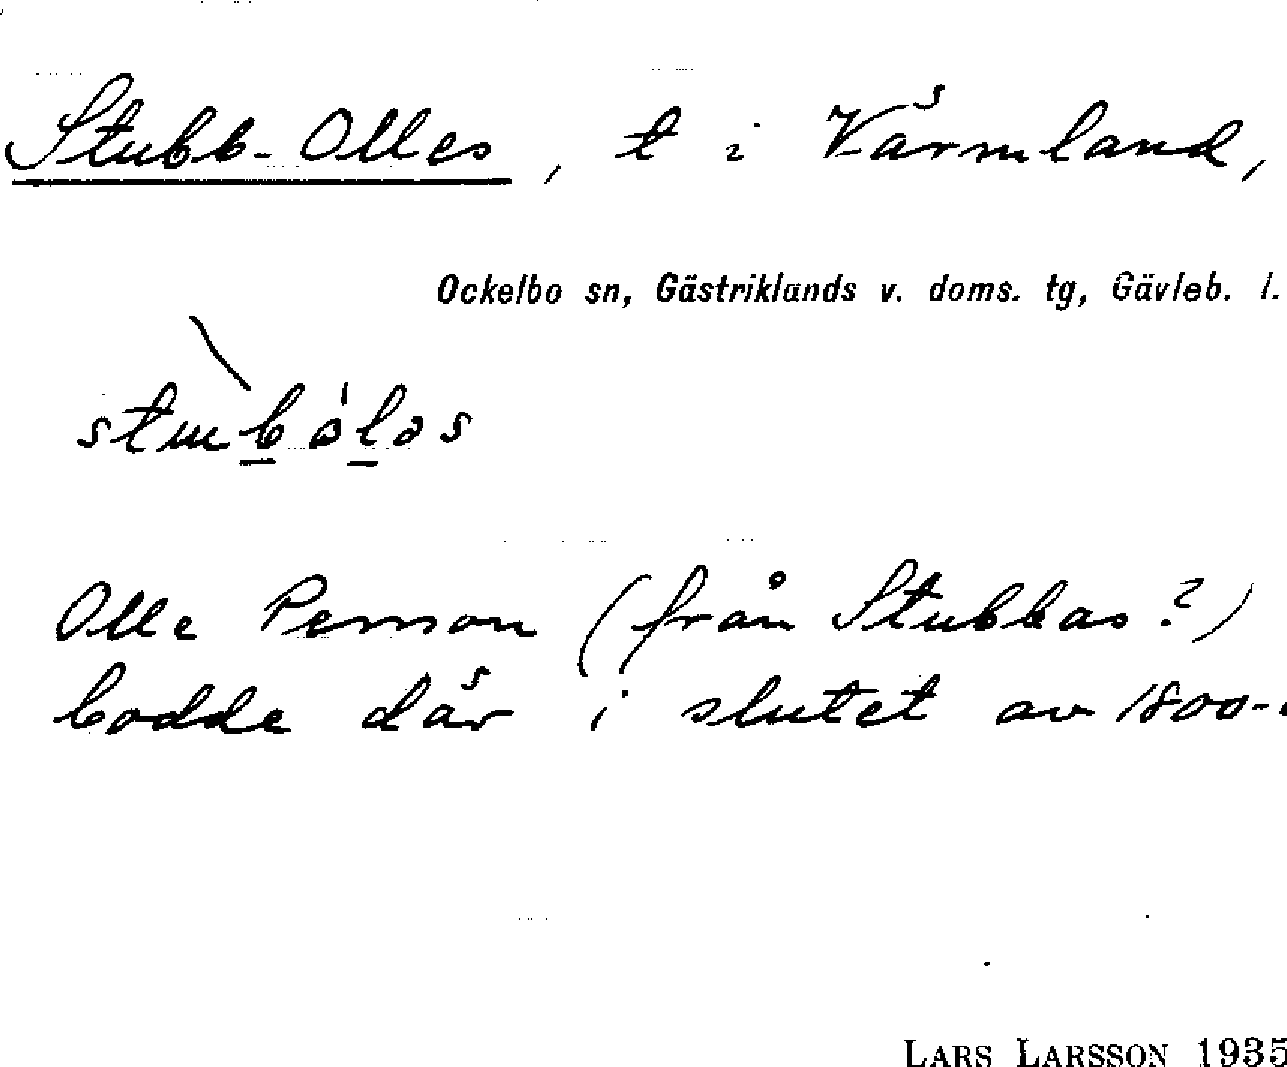 Stubb-Olles, t i Värmland,
Ockelbo sn, Gästriklands v. doms. tg, Gävleb. l.
Olle Persson (från Stubbas?)
bodde där i slutet av 1800-
LARS LARSSON 1935